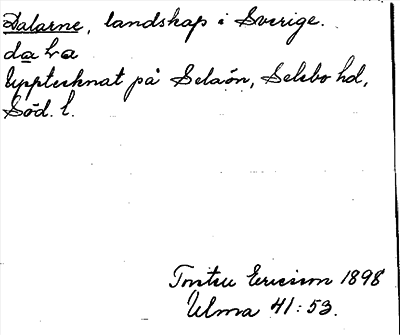 Dalarne, landskap i Sverige.
dara
Upptecknat på Selaön, Selebo hd,
Söd. l.
Tortsu Ericsson 1898
Ulma 41:53.